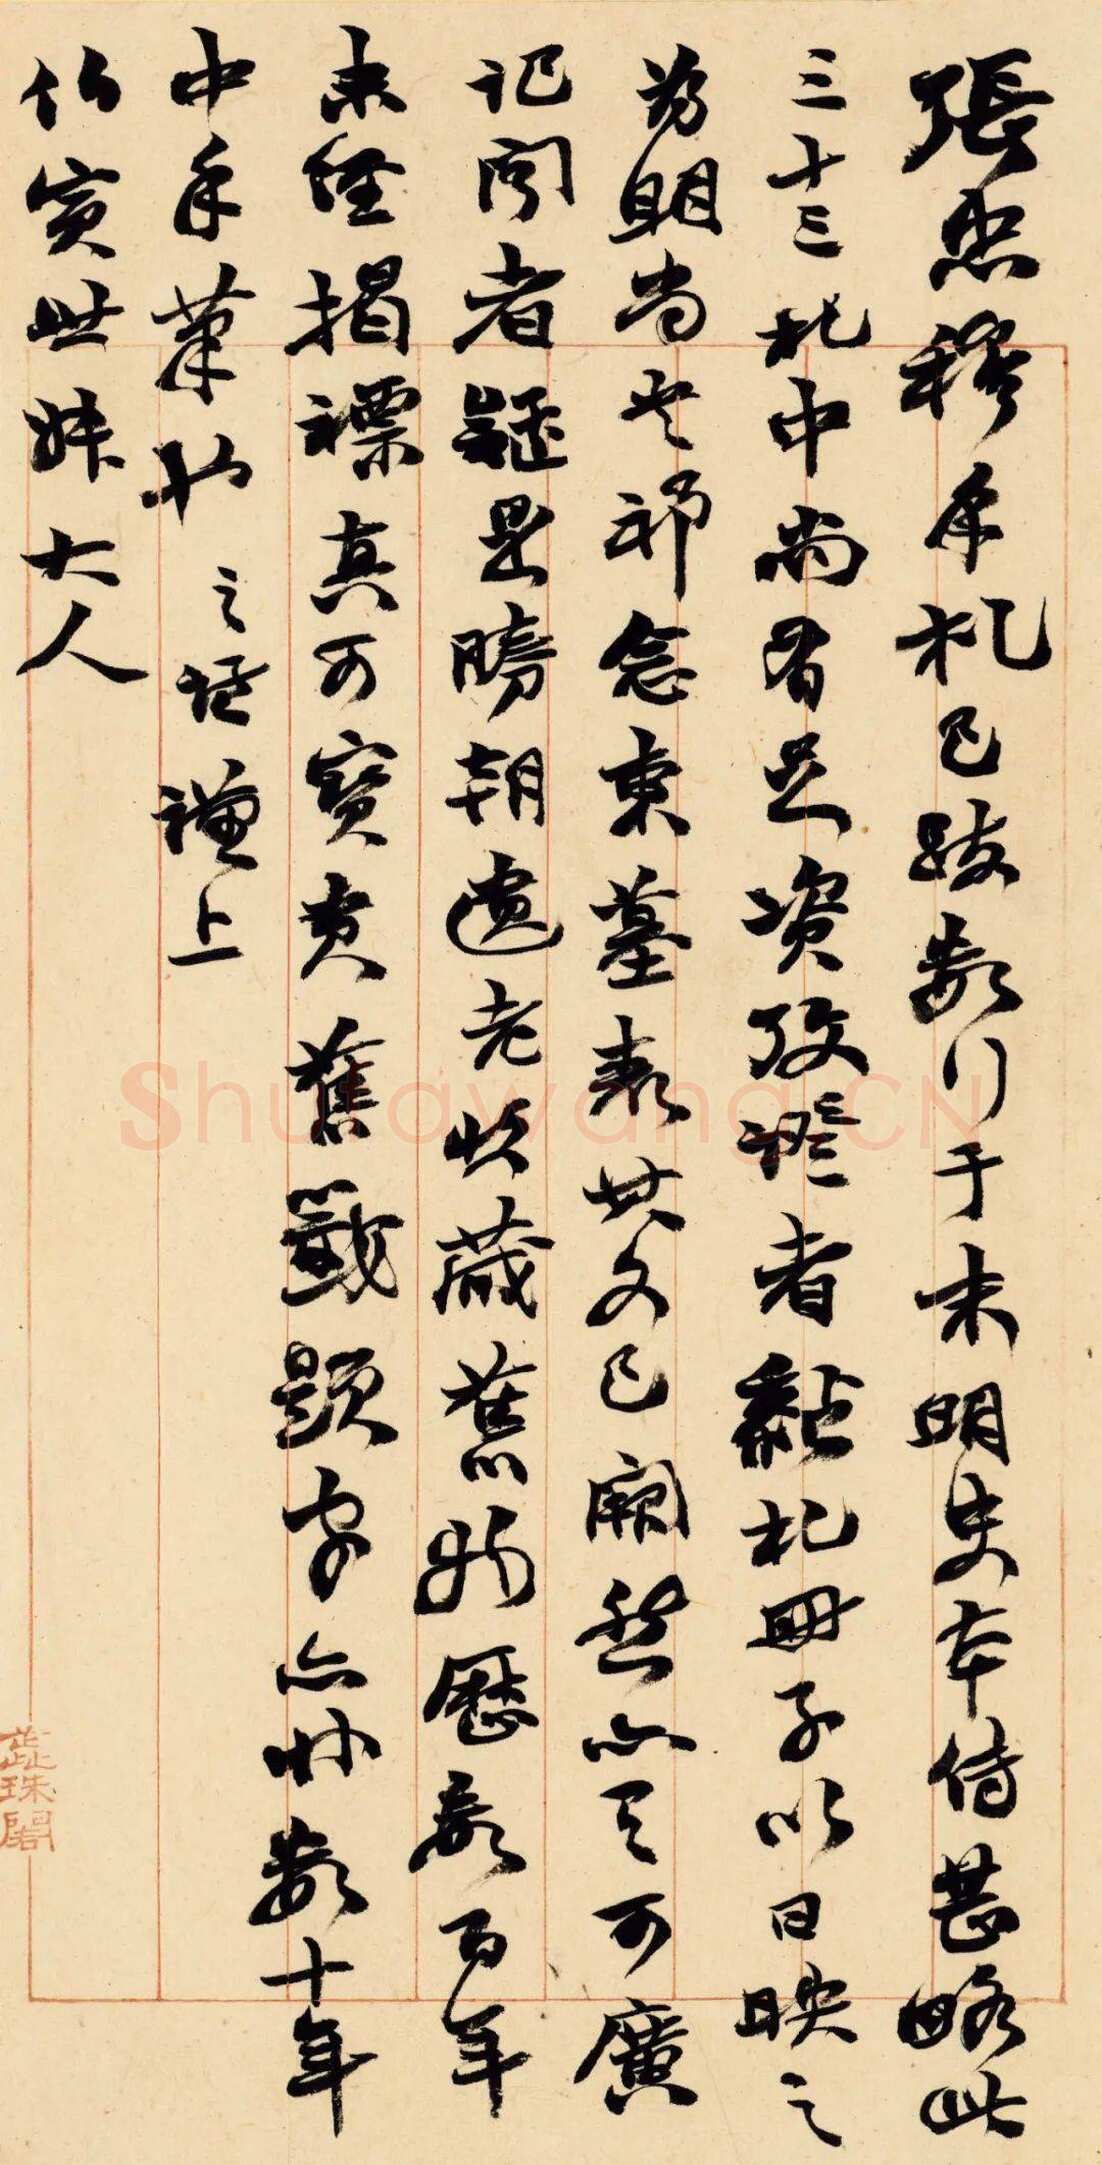 張忠穆手札已跋數行于末明史本傳甚略此
三十三札中尚有足資攷證者黏札冊子以日映之
為明尚书祁念東墓表其文已闕然亦又可廣
記聞者疑是勝朝遺老收藏舊物歷數百年
未經揭褾真可寶貴舊籤題字亦卅數十年
中手筆也之謙上
仏寅世妹大人
Shufawang.CN
珠閣